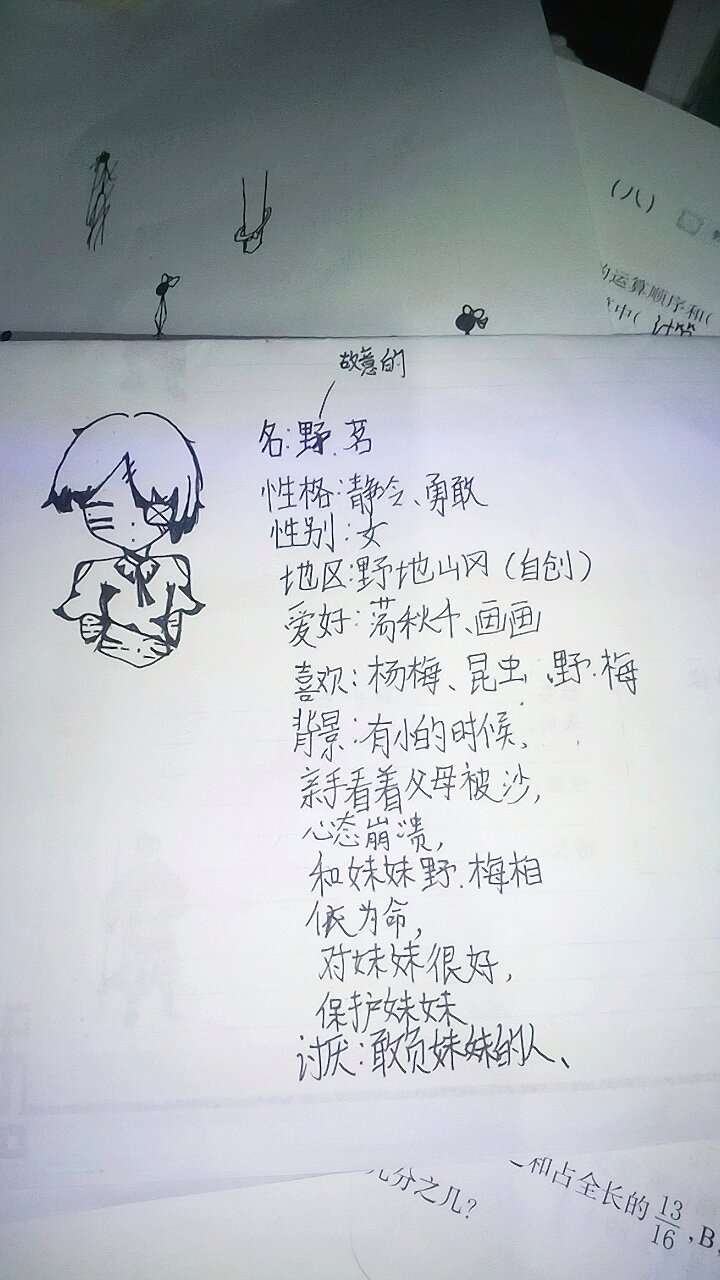 (八)
的运算顺序和(
计算
故意的
名:野.茗
性格:静冷、勇敢
性别:女
地区:野地山冈(自创)
爱好:荡秋千、画画
喜欢:杨梅、昆虫、野.梅
背景:有小的时候,
亲手看着父母被沙,
心态崩溃,
和妹妹野.梅相
依为命,
对妹妹很好,
保护妹妹
讨厌:敢负妹妹的人、
和占全长的13/16,B,
几分之几?